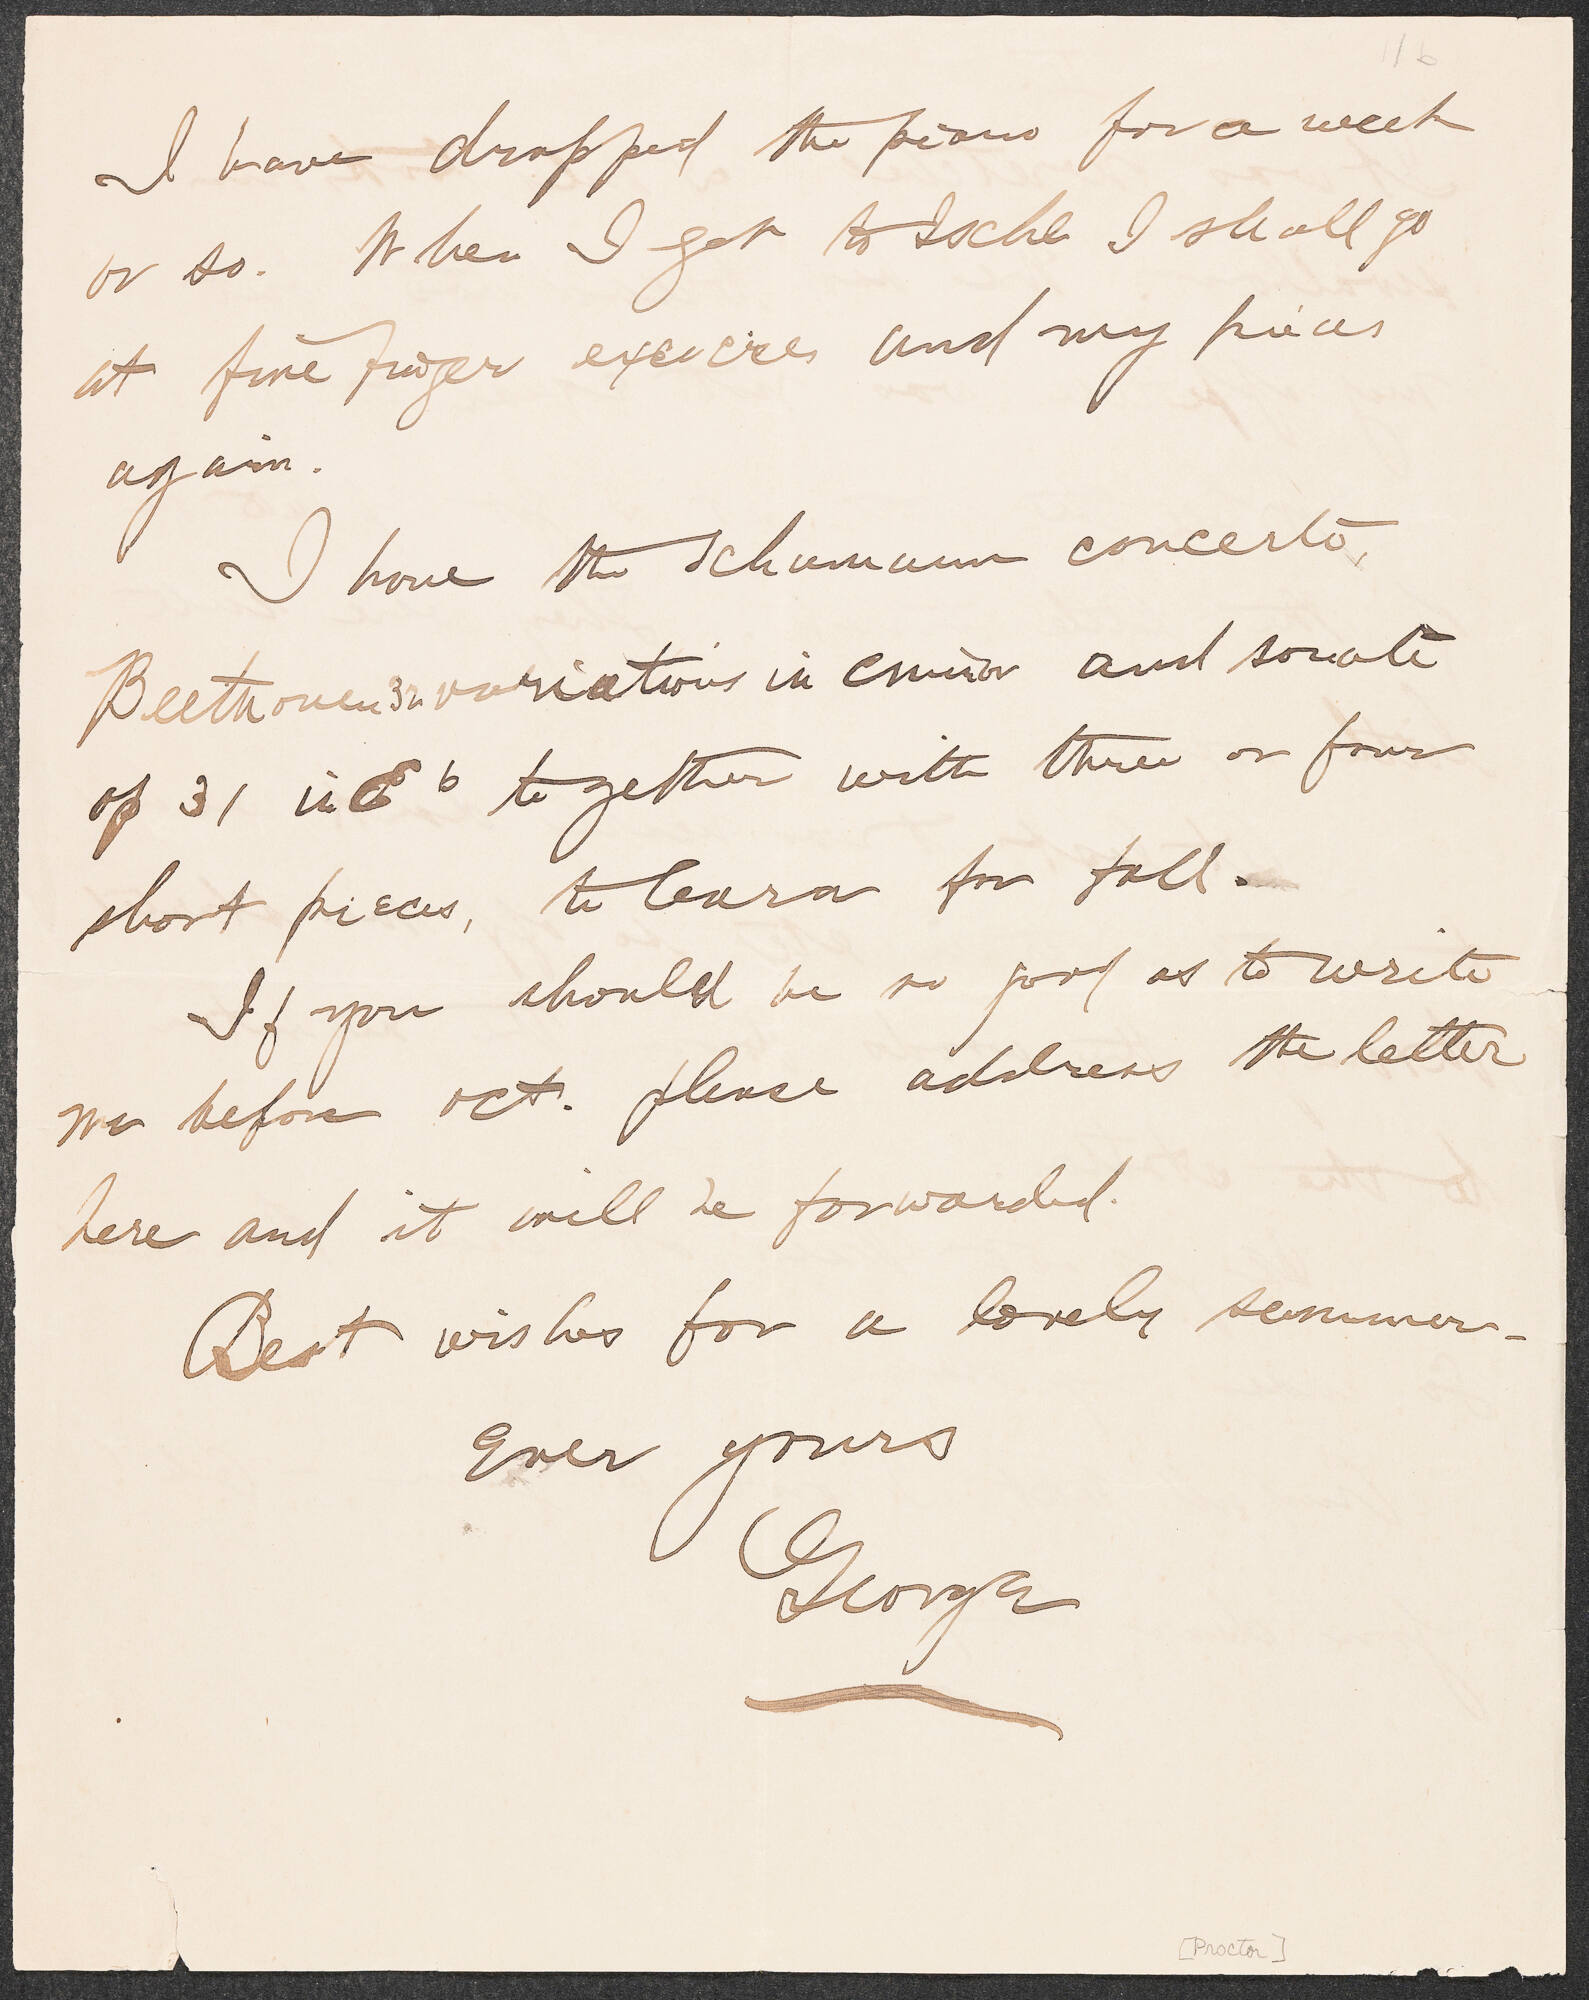 116
I have dropped the piano for a week
or so. When I get to Ischl I shall go
at five finger exercises and my pieces
again.
I have the Schumann concerto,
Beethoven 32 variations in C minor and sonate
op 31 in E b together with three or four
short pieces, to learn for fall.
If you should be so good as to write
me before oct. please address the letter
here and it will be forwarded.
Best wishes for a lovely summer -
Ever yours
George
[Proctor]